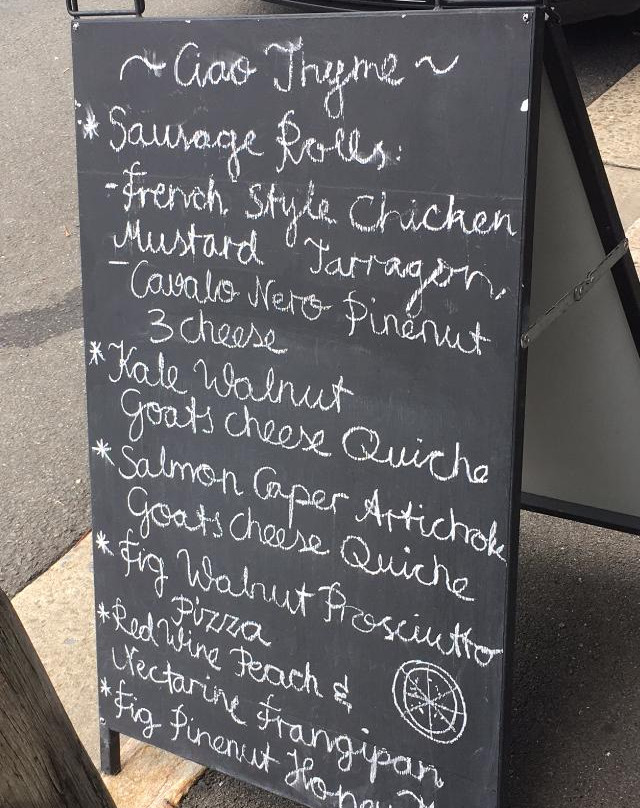 ~ Ciao Thyme ~
* Sausage Rolls:
- French Style Chicken
Mustard Tarragon,
- Cavalo Nero Pinenut
3 cheese
* Kale Walnut
Goats cheese Quiche
* Salmon Caper Artichoke
Goats cheese Quiche
* Fig Walnut Prosciutto
Pizza
* Red Wine Peach &
Nectarine Frangipan
* Fig Pinenut Honey